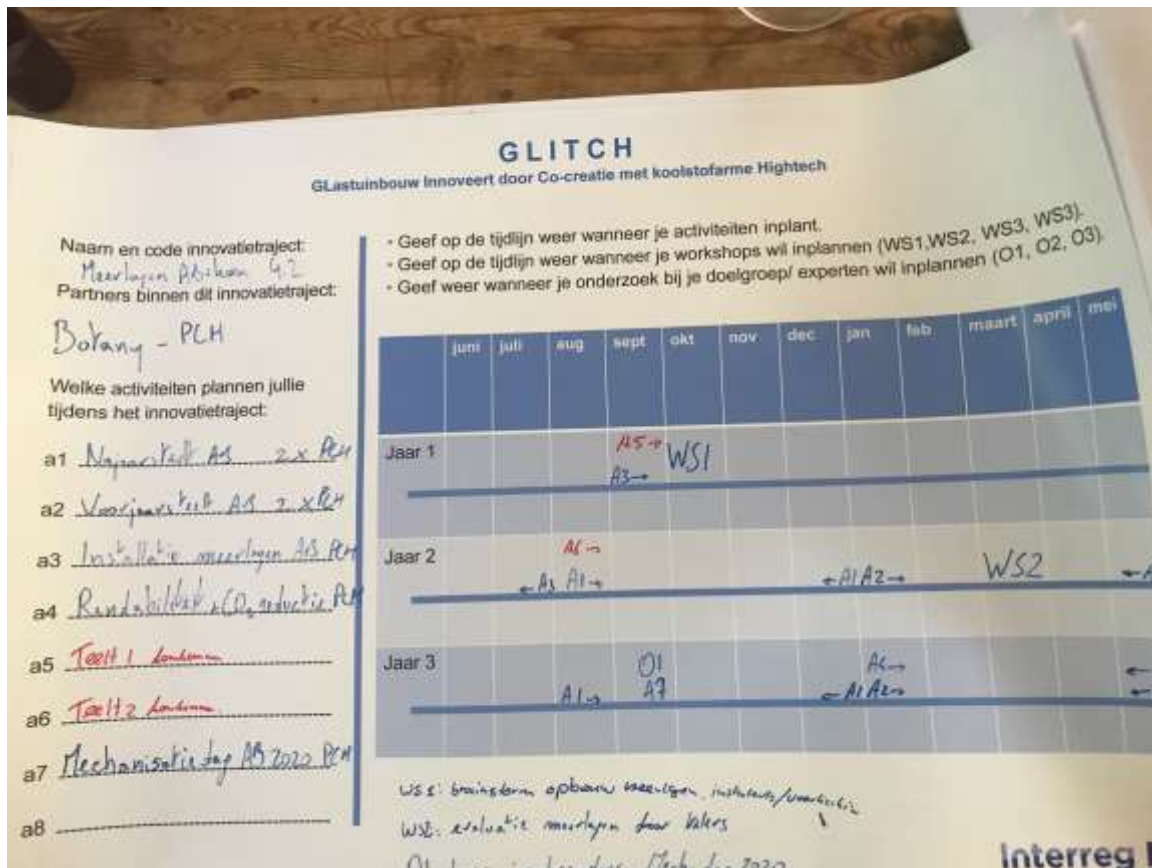 GLITCH
GLastuinbouw Innoveert door Co-creatie met koolstofarme Hightech
Naam en code innovatietraject:
Meerlagen 4.2
Partners binnen dit innovatietraject:
Botany - PCH
Welke activiteiten plannen jullie
tijdens het innovatietraject:
a1 Najaarsteelt AB 2x PCH
a2 Voorjaarsteelt AB 2x PCH
a3 Installatie meerlagen AB PCH
a4 CO2 reductie PCH
a5 Teelt 1
a6 Teelt 2
a7 Mechanisatiedag AB 2020 PCH
a8
• Geef op de tijdlijn weer wanneer je activiteiten inplant.
• Geef op de tijdlijn weer wanneer je workshops wil inplannen (WS1,WS2, WS3, WS3).
• Geef weer wanneer je onderzoek bij je doelgroep/ experten wil inplannen (O1, O2, O3).
juni juli aug sept okt nov dec jan feb maart april mei
Jaar 1
A5→
A3→ WS1
Jaar 2
A6→
←A3 A1→ ←A1 A2→ WS2
Jaar 3
O1
A1→ A7 ←A1 A2→
WS1: brainstorm opbouw meerlagen
WS2: evaluatie meerlagen door telers
Interreg